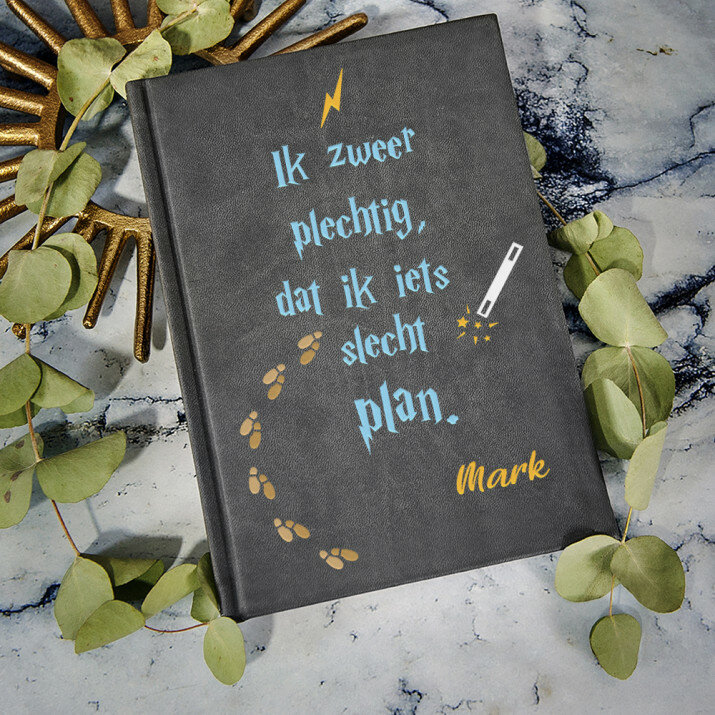 Ik zweer
plechtig,
dat ik iets
slecht
plan.
Mark